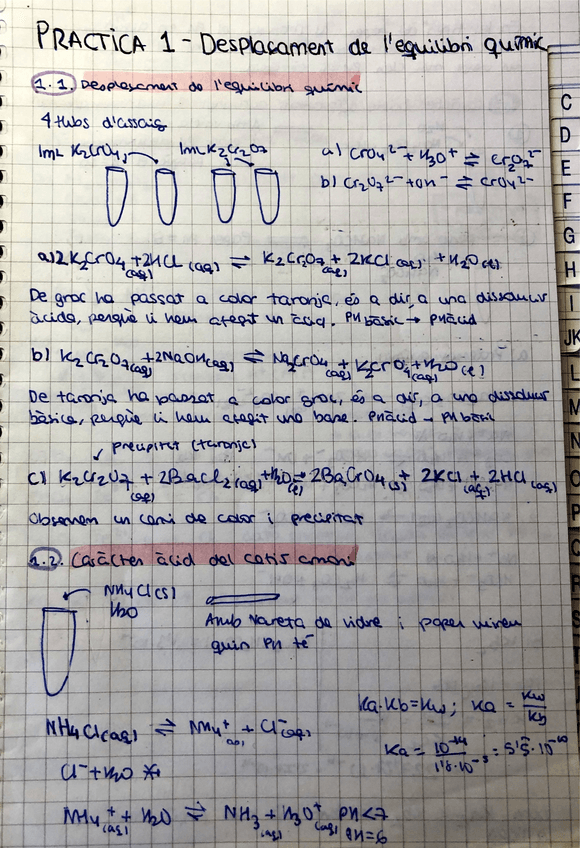 PRACTICA 1 - Desplaçament de l'equilibri químic
1.1. Desplaçament de l'equilibri químic
4 tubs d'assaig
1mL K2CrO4 1mL K2Cr2O7
a) CrO4 2- + H3O+ ⇌ Cr2O7 2-
b) Cr2O7 2- + OH- ⇌ CrO4 2-
a) 2K2CrO4 (aq) + 2HCl (aq) ⇌ K2Cr2O7 (aq) + 2KCl (aq) + H2O (l)
De groc ha passat a color taronja, és a dir, a una dissolució
àcida, perquè li hem afegit un àcid. PH bàsic → PH àcid
b) K2Cr2O7 (aq) + 2NaOH (aq) ⇌ Na2CrO4 (aq) + K2CrO4 (aq) + H2O (l)
De taronja ha passat a color groc, és a dir, a una dissolució
bàsica, perquè li hem afegit una base. PH àcid → PH bàsic
precipitat (taronja)
c) K2Cr2O7 (aq) + 2BaCl2 (aq) + H2O (l) ⇌ 2BaCrO4 (s) + 2KCl (aq) + 2HCl (aq)
Observem un canvi de color i precipitat
1.2. Caràcter àcid del catió amoni
NH4Cl (s)
H2O
Amb vareta de vidre i paper mirem
quin PH té
Ka·Kb=Kw; Ka = Kw/Kb
NH4Cl (aq) ⇌ NH4+ (aq) + Cl- (aq)
Ka = 10^-14/1'8·10^-5 = 5'5·10^-10
Cl- + H2O
NH4+ (aq) + H2O ⇌ NH3 (aq) + H3O+ (aq) PH<7
PH=6
C
D
E
F
G
H
I
JK
L
M
N
O
P